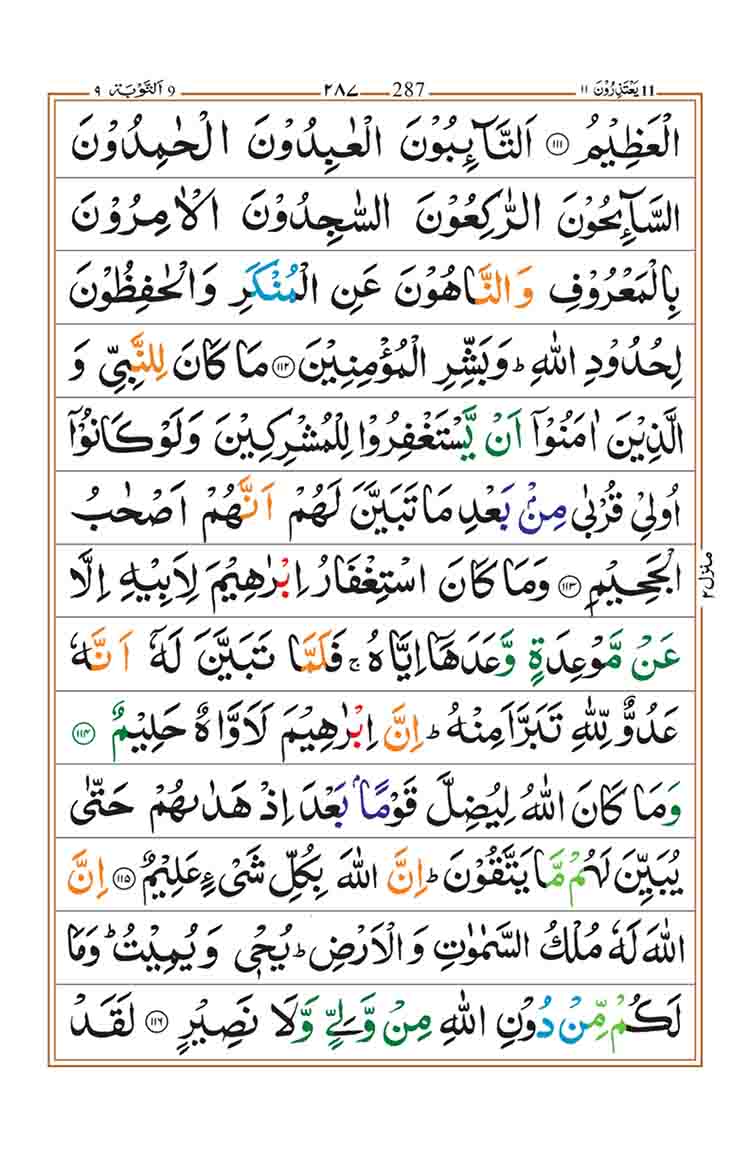 يَعْتَذِرُوْنَ ١١ 11 287 ٢٨٧ 9 اَلتَّوْبَة ٩
الْعَظِيْمُ ﴿١١١﴾ اَلتَّآئِبُوْنَ الْعٰبِدُوْنَ الْحٰمِدُوْنَ
السَّآئِحُوْنَ الرّٰكِعُوْنَ السّٰجِدُوْنَ الْاٰمِرُوْنَ
بِالْمَعْرُوْفِ وَالنَّاهُوْنَ عَنِ الْمُنْكَرِ وَالْحٰفِظُوْنَ
لِحُدُوْدِ اللّٰهِ ؕ وَبَشِّرِ الْمُؤْمِنِيْنَ ﴿١١٢﴾ مَا كَانَ لِلنَّبِيِّ وَ
الَّذِيْنَ اٰمَنُوْٓا اَنْ يَّسْتَغْفِرُوْا لِلْمُشْرِكِيْنَ وَلَوْ كَانُوْٓا
اُولِيْ قُرْبٰى مِنْۢ بَعْدِ مَا تَبَيَّنَ لَهُمْ اَنَّهُمْ اَصْحٰبُ
الْجَحِيْمِ ﴿١١٣﴾ وَمَا كَانَ اسْتِغْفَارُ اِبْرٰهِيْمَ لِاَبِيْهِ اِلَّا
عَنْ مَّوْعِدَةٍ وَّعَدَهَآ اِيَّاهُ ۚ فَلَمَّا تَبَيَّنَ لَهٗٓ اَنَّهٗ
عَدُوٌّ لِّلّٰهِ تَبَرَّاَ مِنْهُ ؕ اِنَّ اِبْرٰهِيْمَ لَاَوَّاهٌ حَلِيْمٌ ﴿١١٤﴾
وَمَا كَانَ اللّٰهُ لِيُضِلَّ قَوْمًاۢ بَعْدَ اِذْ هَدٰىهُمْ حَتّٰى
يُبَيِّنَ لَهُمْ مَّا يَتَّقُوْنَ ؕ اِنَّ اللّٰهَ بِكُلِّ شَيْءٍ عَلِيْمٌ ﴿١١٥﴾ اِنَّ
اللّٰهَ لَهٗ مُلْكُ السَّمٰوٰتِ وَالْاَرْضِ ؕ يُحْيٖ وَيُمِيْتُ ؕ وَمَا
لَكُمْ مِّنْ دُوْنِ اللّٰهِ مِنْ وَّلِيٍّ وَّلَا نَصِيْرٍ ﴿١١٦﴾ لَقَدْ
منزل ٢